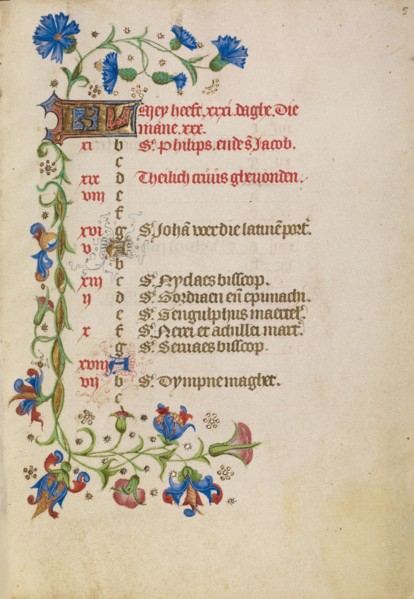 KL Mey heeft .xxxi. daghe. Die
mane .xxx.
xi b S. Philips. ende S. Jacob.
c
xix d Theilich cruus ghevonden.
viii e
f
xvi g S. Johā voer die latinē port.
v A
b
xiii c S. Nyclaes bisscop.
ij d S. Gordiaen eñ epimachi.
e S. Gengulphus maertel.
x f S. Nerei et achillei mart.
g S. Servaes bisscop.
xviii A
vij b S. Dympne maghet.
c